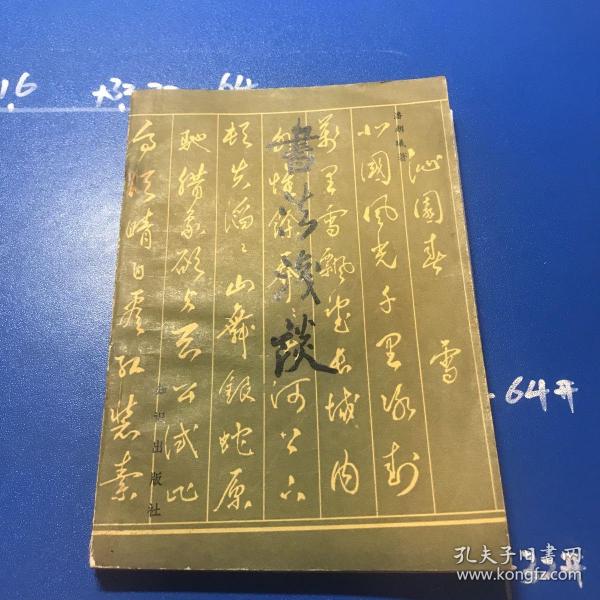 潘朝曦著
沁園春 雪
北國風光千里冰封
萬里雪飄望長城内
外惟餘莽〻大河上下
頓失滔〻山舞銀蛇原
馳臘象欲与天公試比
高須晴日看紅裝素
書法淺談
知识出版社
64
64开
孔夫子旧書网
www.kongfz.com